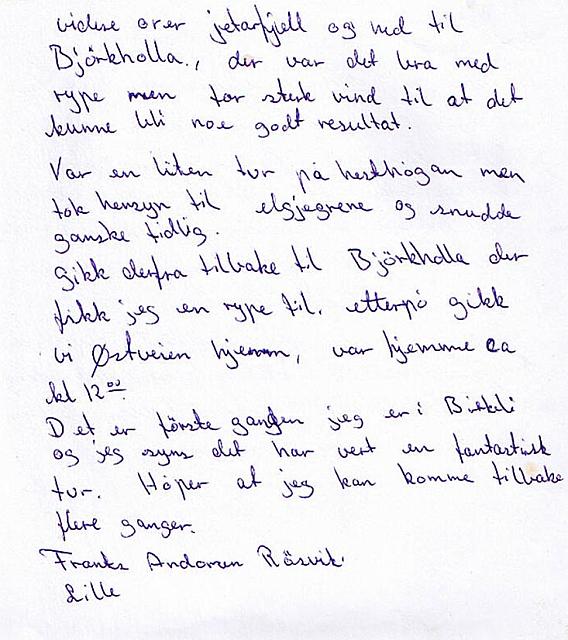 videre over jetarfjell og ned til
Björkholla., der var det bra med
rype men for sterk vind til at det
kunne bli noe godt resultat.
Var en liten tur på hesthögan men
tok hensyn til elgjegrene og snudde
ganske tidlig.
Gikk derfra tilbake til Björkholla der
fikk jeg en rype til. etterpå gikk
vi Østveien hjemm, var hjemme ca
kl 12 00
Det er förste gangen jeg er i Birkeli
og jeg syns det har vert en fantastisk
tur. Håper at jeg kan komme tilbake
flere ganger.
Räsvik.
Lille